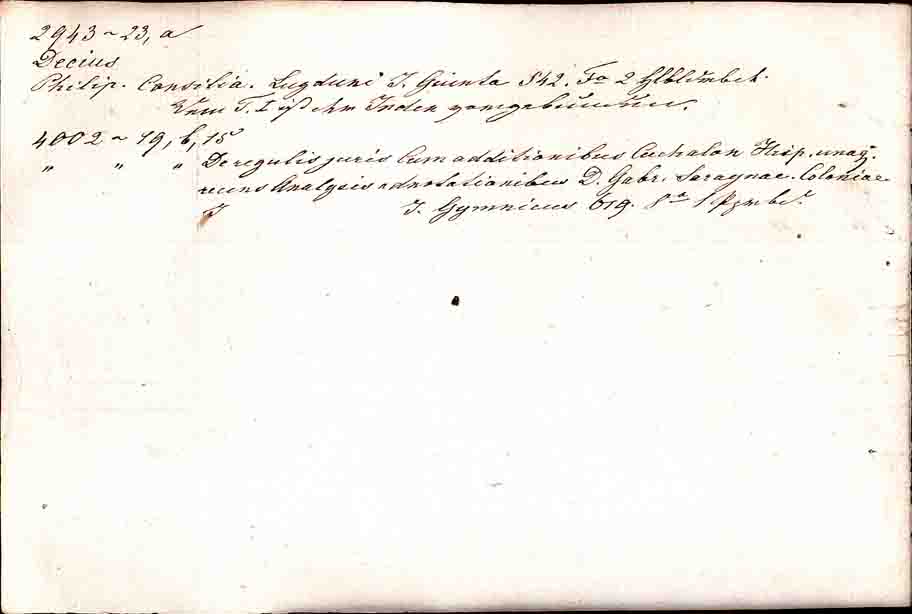 2943 ~ 23, a
Decius
Philip. Consilia. Lugduni J. Giunta 542. Fo 2 Hlblrnbd.
Dem T. I ist ein Index
4002 ~ 19, b, 15
" " " De regulis juris Cum additionibus Cuchalon Hisp. unaq.
recens Analysis adnotationibus D. Gabr. Saraynae. Coloniae
J. Gymnicus 619. 8o 1